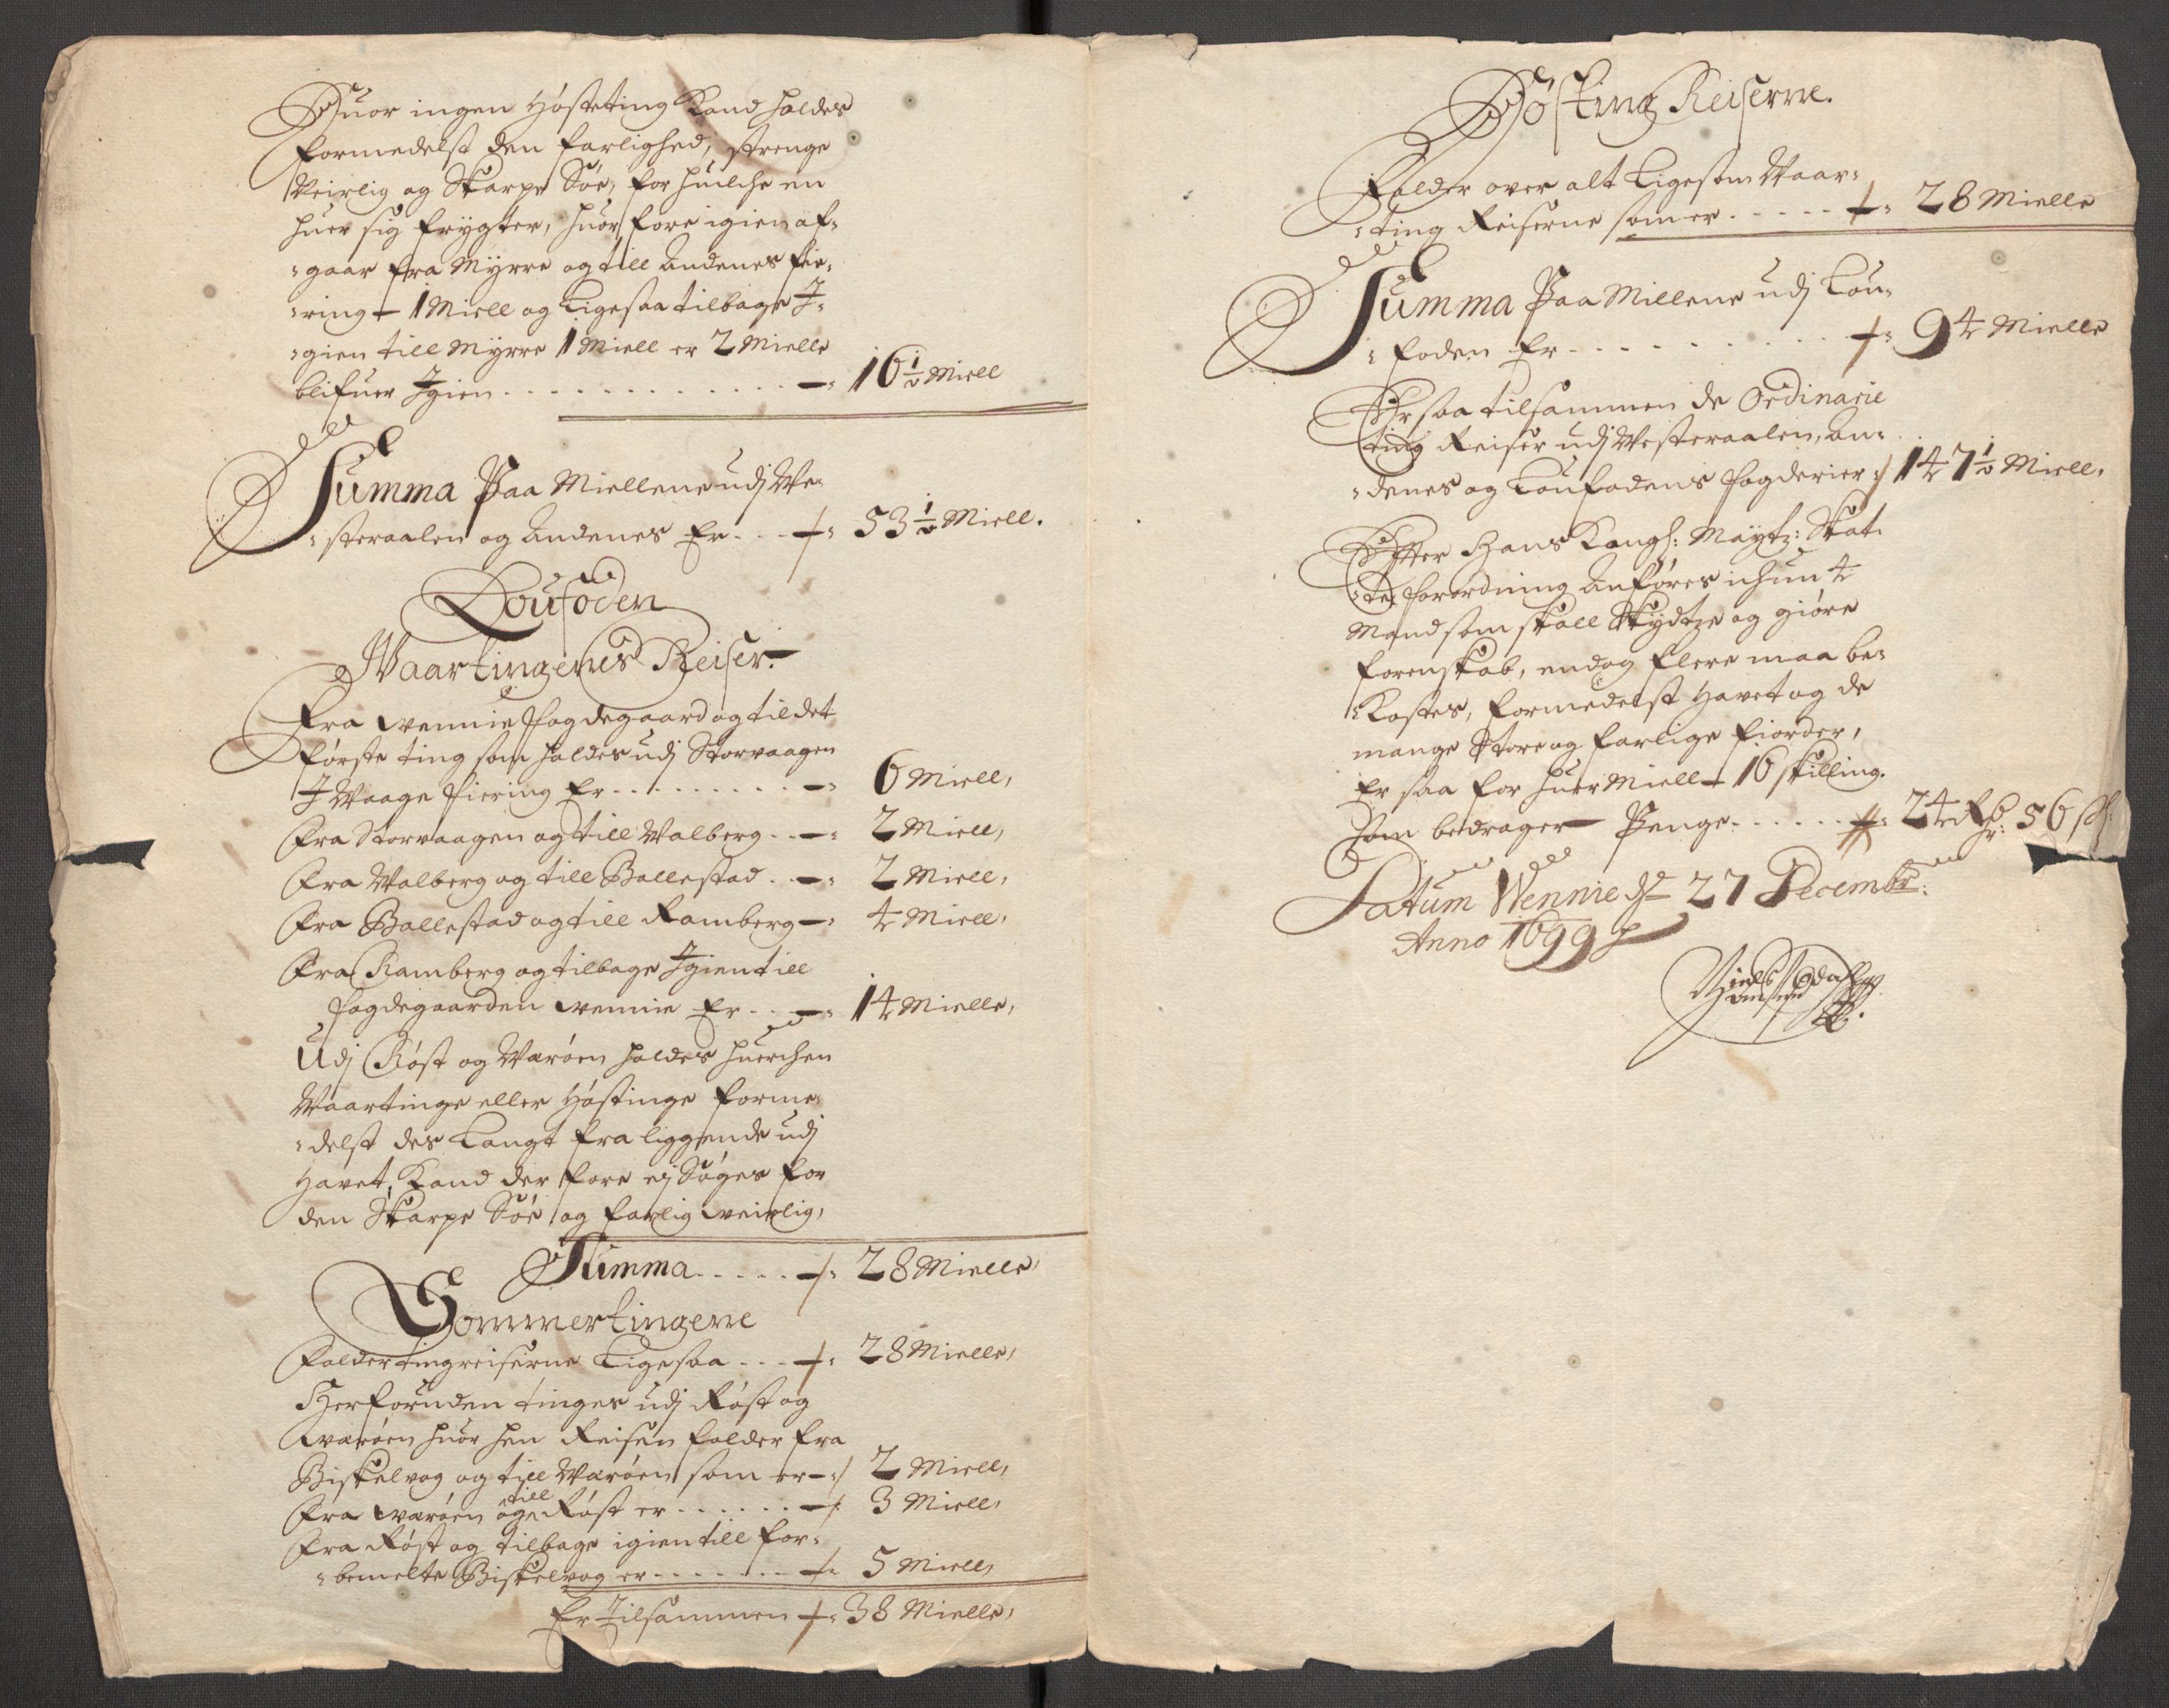 Huor ingen Høsteting Kand holdes
formedelst den farlighed, strenge
Veirlig og Skarpe Søe, for huilche en
huer sig frygter, huor fore igien af¬
gaar fra Myrre og till Andenes fie¬
ring - 1 Miell og Ligesaa tilbage J¬
gien till Myrre 1 Miell er 2 Mielle
blifuer Jgien . . . . . . . . . . . . - 16½ Miell
Summa Paa Miellene udj We¬
steraalen og Andenes Er . . . 53½ Miell.
Loufoden
Waartingenes Reiser.
Fra Wennie Fogdegaard og til det
første ting som holdes udj Storvaagen
J Waage fiering Er . . . . . . . . . - 6 Miell,
Fra Storvaagen og till Walberg . . - 2 Miell,
Fra Walberg og till Ballestad . . - 2 Miell,
Fra Ballestad og till Ramberg - 4 Miell,
Fra Ramberg og tilbage Jgien till
fogdegaarden Wennie Er . . - 14 Mielle,
Udj Røst og Warøen holdes huerchen
Waartinge eller Høstinge forme¬
delst des Langt fra liggende udj
Havet, Kand der fore ej Søges for
den Skarpe Søe og farlig veirlig,
Summa . . . . . 28 Mielle,
Sommertingene
Falder tingreiserne Ligesaa . . . 28 Mielle,
Herforuden tinges udj Røst og
Warøen huor hen Reisen falder fra
Biskelvog og till Warøen som er - 2 Miell,
Fra Warøen og till Røst er . . . . . . 3 Miell,
Fra Røst og tilbage igien till for¬
bemelte Biskelvog er . . . . . . . 5 Miell,
Er Tilsammen 38 Mielle,
Høsting Reiserne.
Falder over alt Ligesom Waar¬
ting Reiserne som er . . . . . 28 Mielle
Summa Paa Millene udj Lou¬
foden Er . . . . . . . . . . 94 Mielle
Er saa tilsammen de Ordinarie
ting Reiser udj Westeraalen, An¬
denes og Loufodens fogderier 147½ Miell.
Efter Hans Kongl: Maytz: Skat¬
tes forordning Anføres ichun 4
Mand som skall Skydtze og giøre
forenskab, endog flere maa be¬
Kostes, formedelst Havet og de
mange Store og farlige fiorder,
Er saa for huer Miell 16 skilling.
Som bedrager Penge . . . . . . 24 Rdr: 56 sh:
Datum Wennie d: 27 Decembr:
Anno 1699
Niels